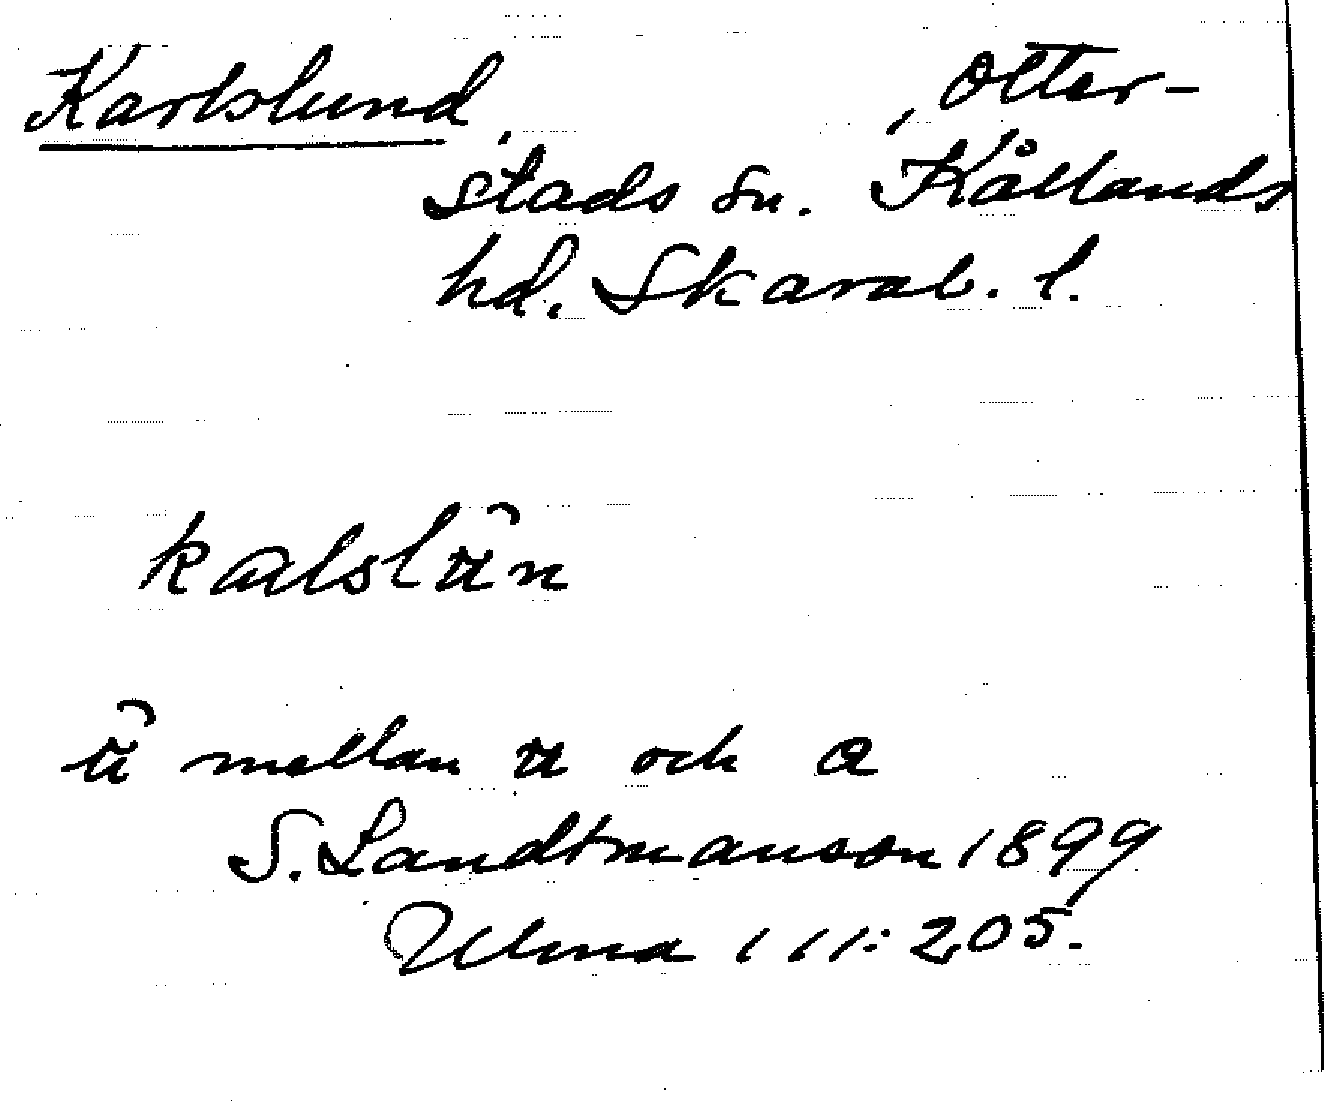 Karlslund, Otter-
stads sn. Kållands
hd. Skarab. l.
mellan och a
S. Landtmanson 1899
Ulma 111:205.